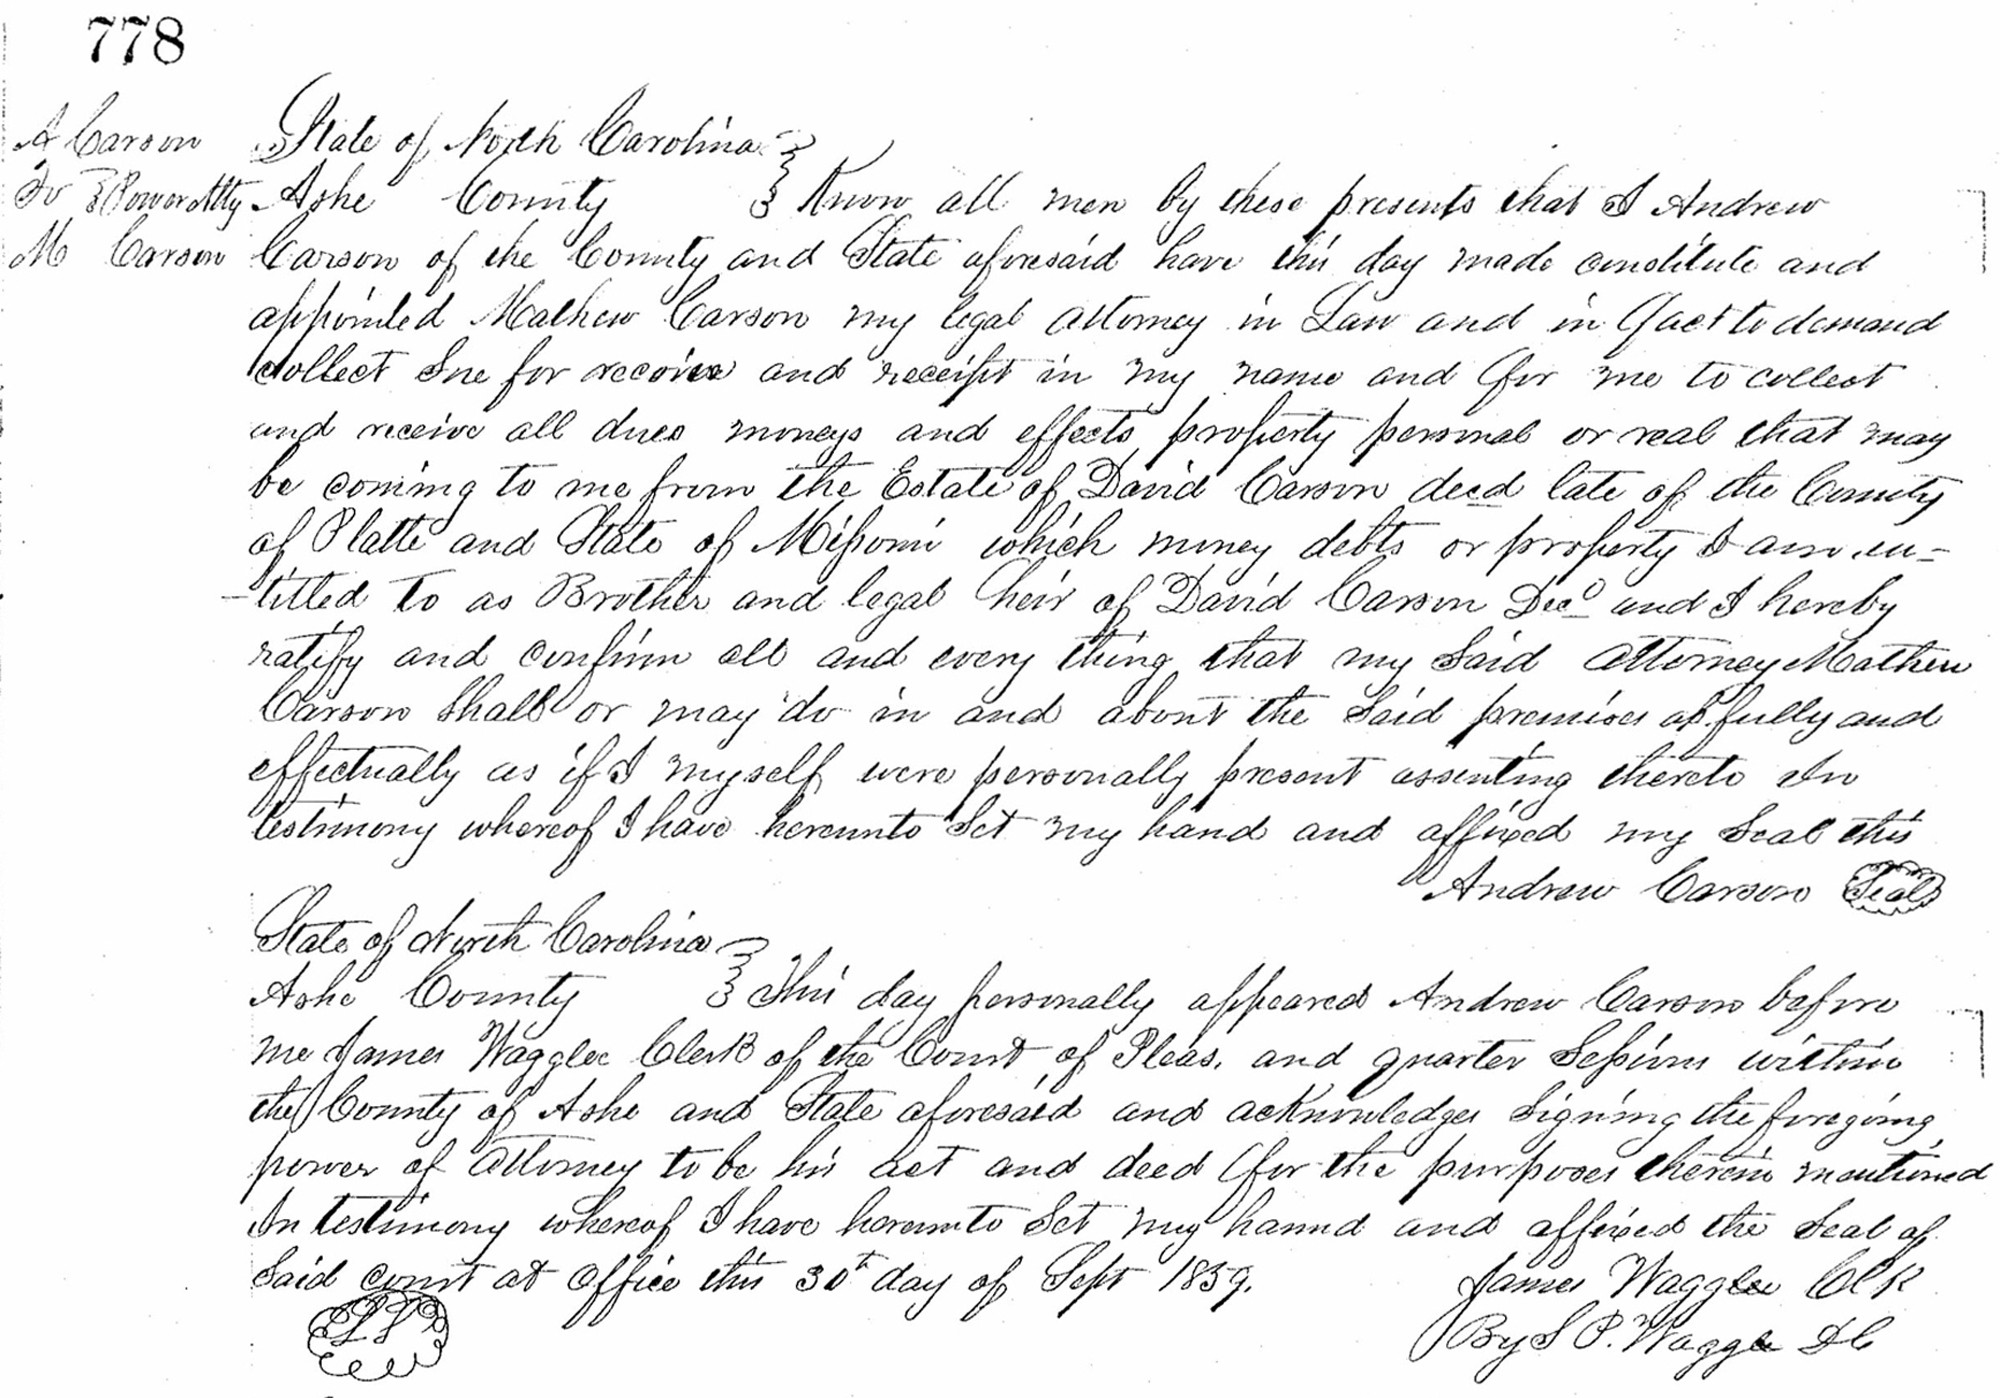 778
A Carson
To Power Atty
M Carson
State of North Carolina
Ashe County Know all men by these presents that I Andrew
Carson of the County and State aforesaid have this day made constitute and
appointed Mathew Carson my legal attorney in Law and in fact to demand
collect Sue for receive and receipt in my name and for me to collect
and receive all dues moneys and effects property personal or real that may
be coming to me from the Estate of David Carson decd late of the County
of Platte and State of Missouri which money debts or property I am en-
-titled to as Brother and legal heir of David Carson Decd and I hereby
ratify and confirm all and every thing that my Said attorney Mathew
Carson Shall or may do in and about the Said premises as fully and
effectually as if I myself were personally present assenting thereto In
testimony whereof I have hereunto Set my hand and affixed my Seal this
Andrew Carson Seal
State of North Carolina
Ashe County This day personally appeared Andrew Carson before
me James Waggle Clerk of the Court of Pleas, and quarter Sessions within
the County of Ashe and State aforesaid and acknowledges Signing the foregoing
power of attorney to be his act and deed for the purposes therein mentioned
In testimony whereof I have hereunto Set my hannd and affixed the Seal of
Said court at office this 30th day of Sept 1859.
James Waggle Clk
By S P. Waggle DC
LS